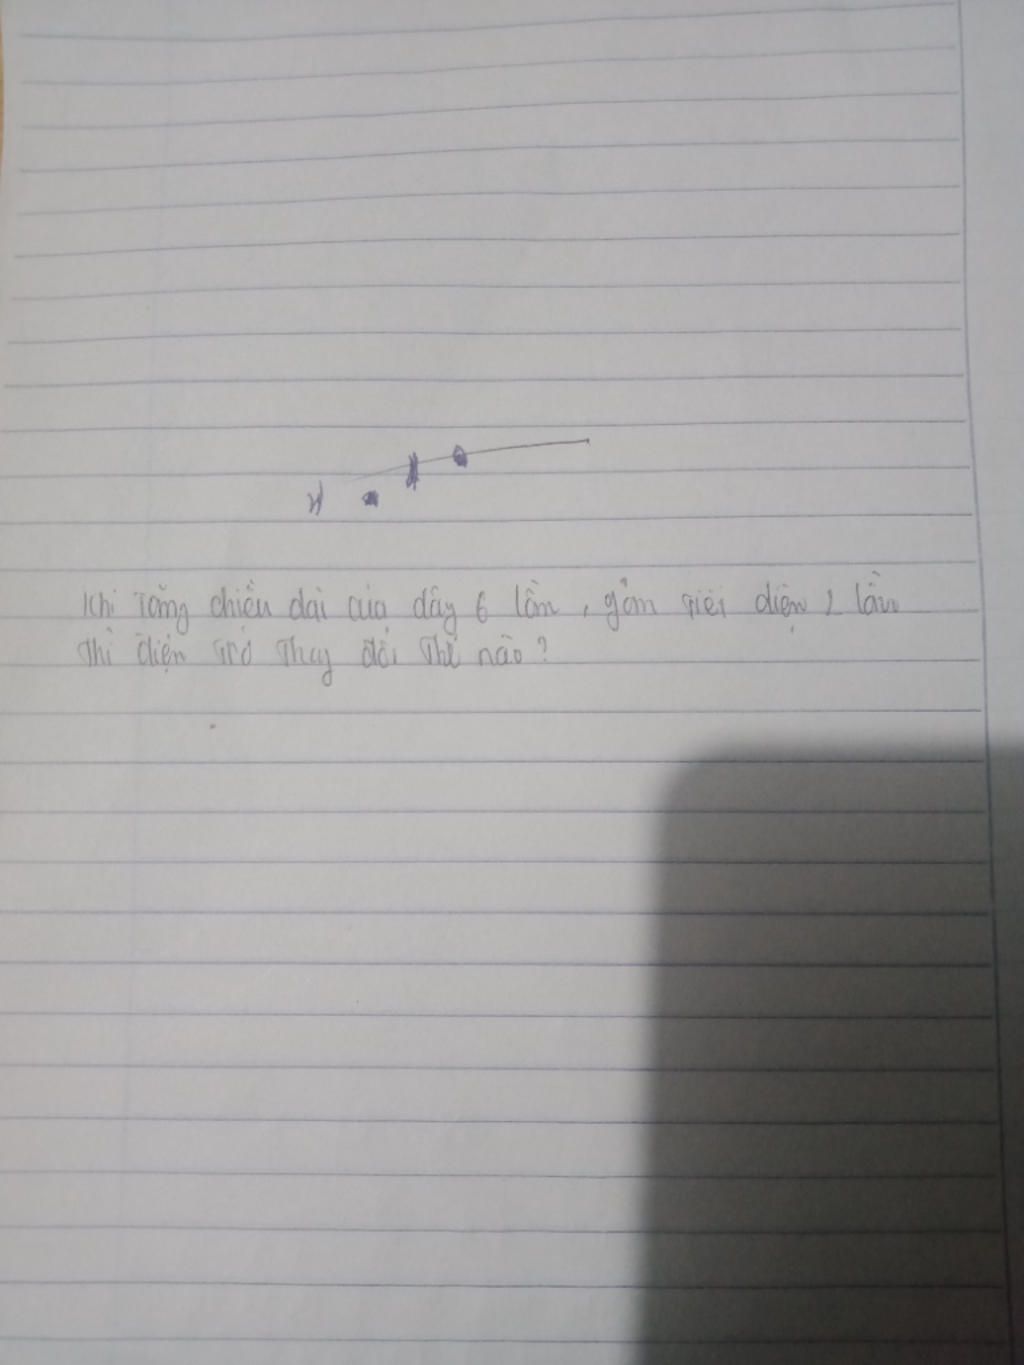 Khi tăng chiều dài của dây 6 lần, giảm tiết diện 2 lần
thì điện trở thay đổi thế nào?